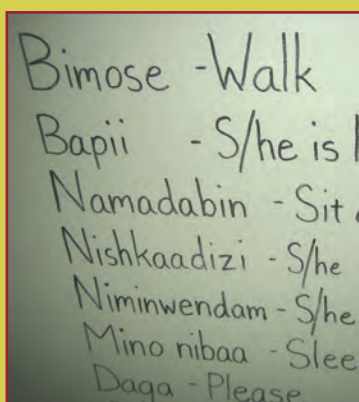 Bimose - Walk
Bapii - S/he is
Namadabin - Sit
Nishkaadizi - S/he
Niminwendam - S/he
Mino nibaa - Slee
Daga - Please